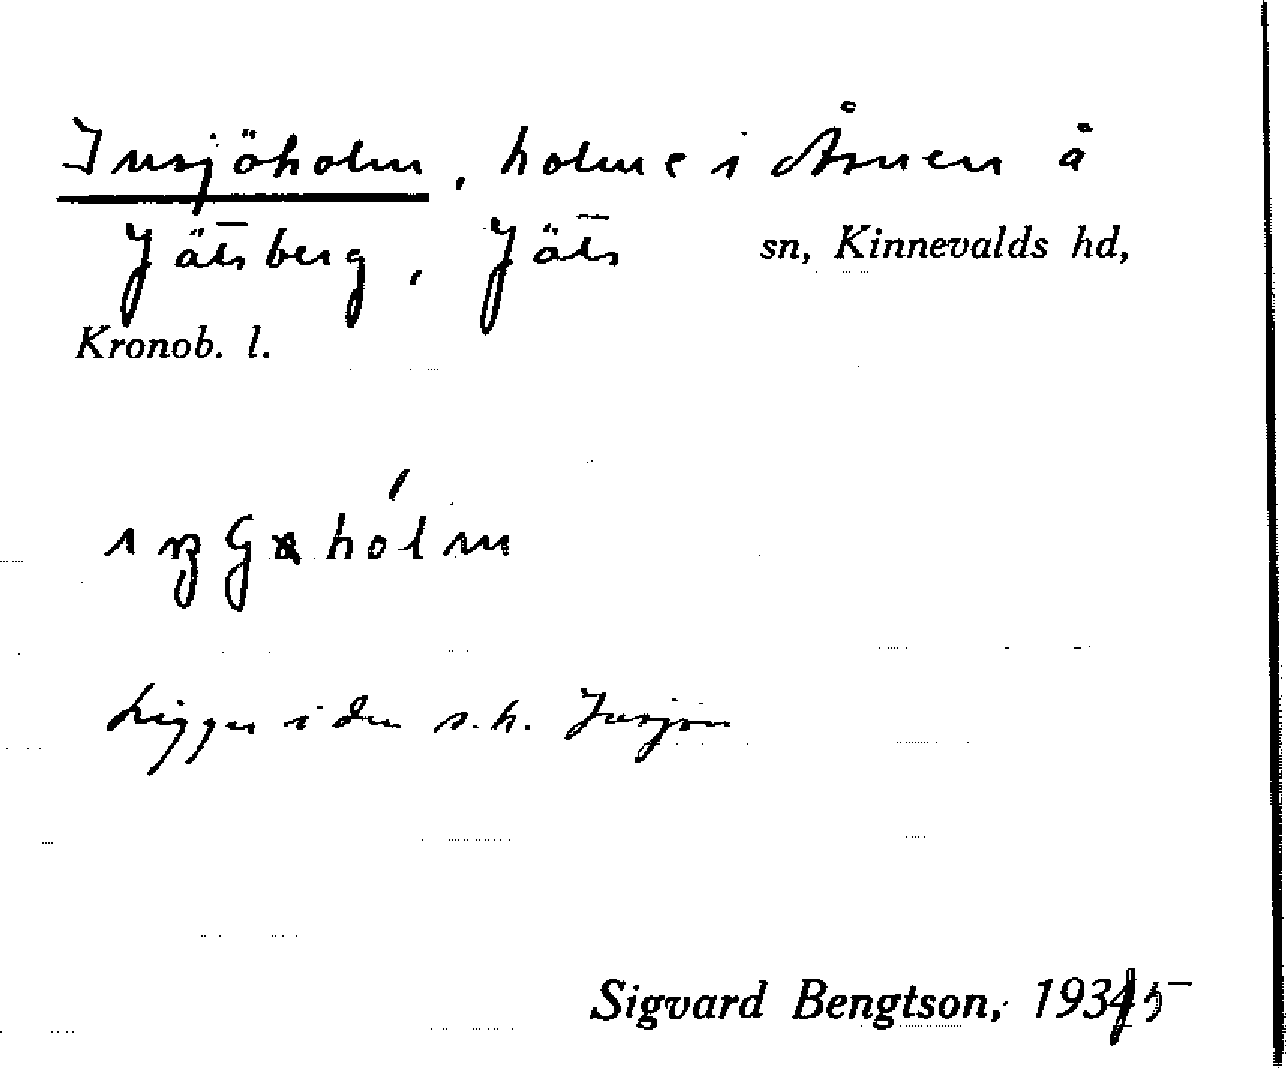 Insjöholm, holme i Åsnen å
Jätsberg, Jäts sn, Kinnevalds hd,
Kronob. l.
hólm
Ligger i den s.k. Insjön
Sigvard Bengtson, 1935